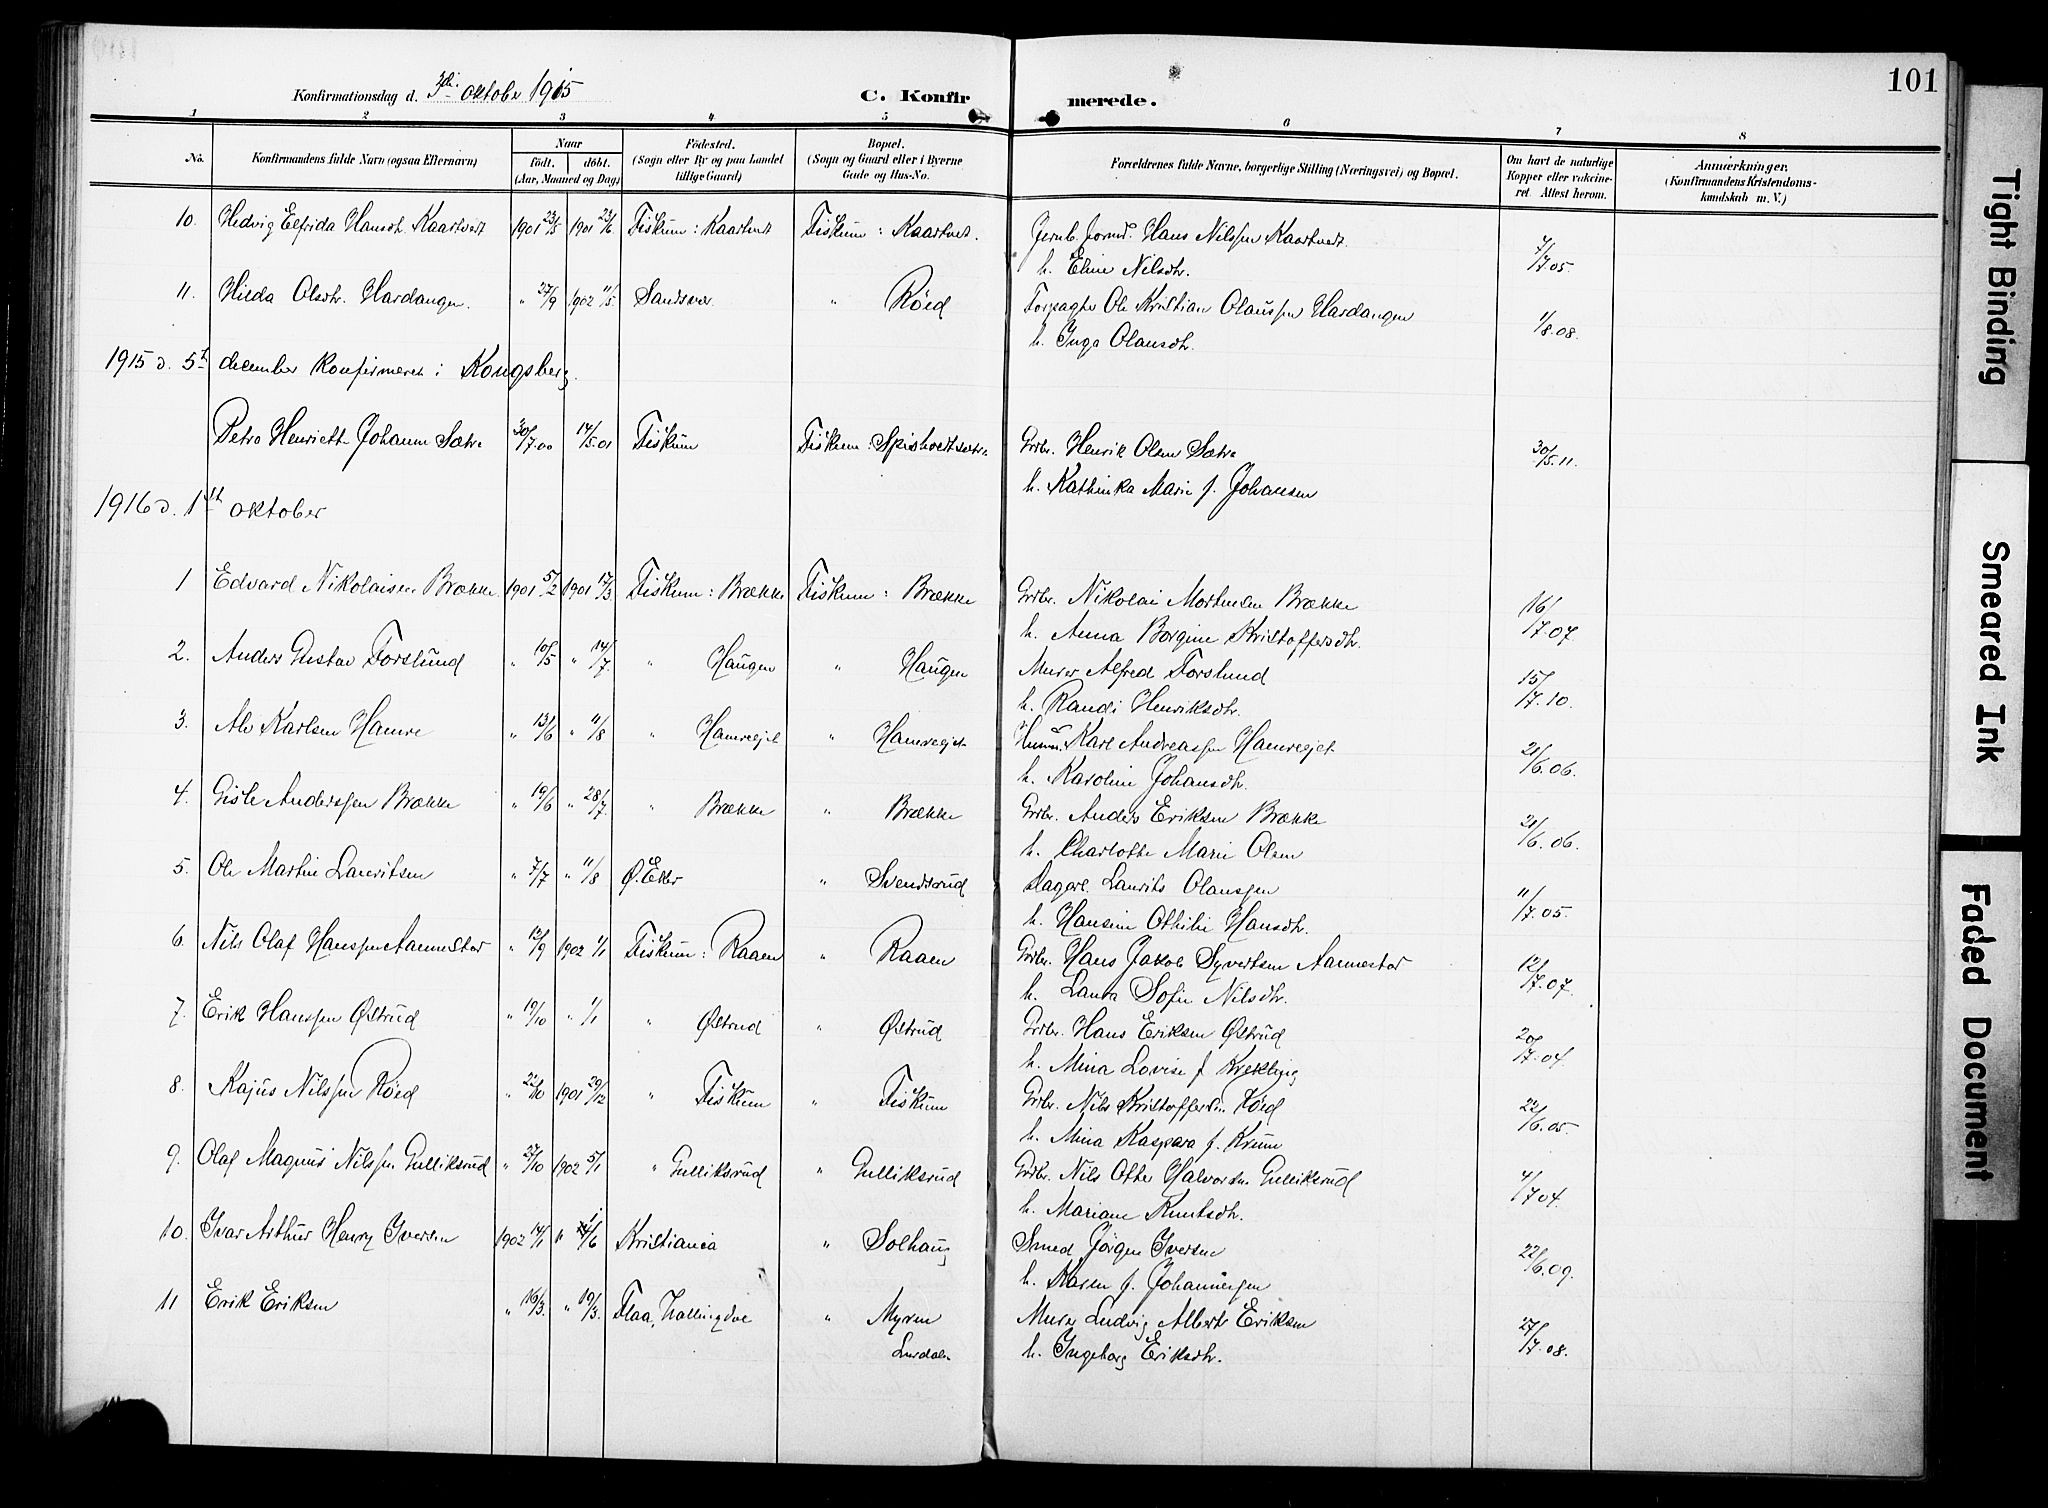 101
Konfirmationsdag d. 3di oktober 1915 C. Konfirmerede.
1 2 3 4 5 6 7 8
No. Konfirmandens fulde Navn (ogsaa Efternavn) Naar født. døbt. (Aar, Maaned og Dag) Fødested. (Sogn eller By og paa Landet tillige Gaard) Bopæl. (Sogn og Gaard eller i Byerne Gade og Hus-No. Forældrenes fulde Navne, borgerlige Stilling (Næringsvei) og Bopæl. Om havt de naturlige Kopper eller vakcineret. Attest herom. Anmærkninger. (Konfirmandens Kristendomskundskab m. V.)
10. Hedvig Elfrida Hansdtr. Kaartvedt 1901 23/5 1901 23/6 Fiskum: Kaartvedt Fiskum: Kaartvet. Jernb. formd. Hans Nilssen Kaartvedt. 4/7.05.
h. Eline Nilsdtr.
11. Hilda Olsdtr. Hardangen. " 27/9 1902 11/5 Sandsvær. " Røed Forpagter Ole Kristian Olaussen Hardangen 1/8.08.
h. Inga Olausdtr.
1915 d. 5te december konfirmeret i Kongsberg.
Petra Henriette Johanne Sætra 30/7.00 14/5.01 Fiskum Fiskum: Spisholtsætra Grdbr. Henrik Olsen Sætra 30/5.11.
h. Kathinka Marie f. Johansen
1916 d. 1ste oktober
1 Edvard Nikolaisen Brække 1901 5/2 1901 17/3 Fiskum: Brække Fiskum: Brække Grdbr. Nikolai Mortensen Brække 16/7.07.
h. Anna Borgine Kristoffersdtr.
2. Anders Gustav Forslund " 10/5 " 14/7. " Haugen " Haugen Murer Alfred Forslund 15/7.10.
h. Randi Henriksdtr.
3. Alv Karlsen Hamre " 13/6 " 11/8 " Hamreejet " Hamreejet Husm. Karl Andreassen Hamreejet 21/6.06.
h. Karoline Johansdtr.
4. Gisle Anderssen Brække " 19/6 " 28/7. " Brække " Brække Grdbr. Anders Eriksen Brække 21/6.06.
h. Charlotte Marie Olsen
5. Ole Martin Lauritsen " 7/7 " 11/8 Ø. Eker " Svendsrud Dagarb. Laurits Olaussen 11/7.05.
h. Hansine Othilie Hansdtr.
6. Nils Olaf Hanssen Aannestad " 12/9 1902 1/1 Fiskum: Raaen " Raaen Grdbr. Hans Jakob Syvertsen Aannestad 12/7.07.
h. Laura Sofie Nilsdtr.
7. Erik Hanssen Østrud " 19/10 " 1/1 " Østrud " Østrud Grdbr. Hans Eriksen Østrud 20/7.04.
h. Mina Lovise f. Krekling
8. Kajus Nilssen Røed " 22/10 1901 29/12 " Fiskum " Fiskum Grdbr. Nils Kristoffersen Røed 22/6.05.
h. Mina Kaspara f. Krum
9. Olaf Magnus Nilssen Gulliksrud " 27/10 1902 5/1 " Gulliksrud " Gulliksrud Grdbr. Nils Otter Halvorsen Gulliksrud 4/7 04.
h. Mariane Knutsdtr.
10. Ivar Arthur Henry Iversen 1902 14/1 " 1/6 Kristiania " Solhaug Smed Jørgen Iversen 22/6.09.
h. Karen f. Johannessen
11 Erik Eriksen " 16/3. " 19/3. Flaa, Hallingdal " Myren Murer Ludvig Albert Eriksen 27/7.08.
Lurdalen h. Ingeborg Eriksdtr.
Tight Binding
Smeared Ink
Faded Document